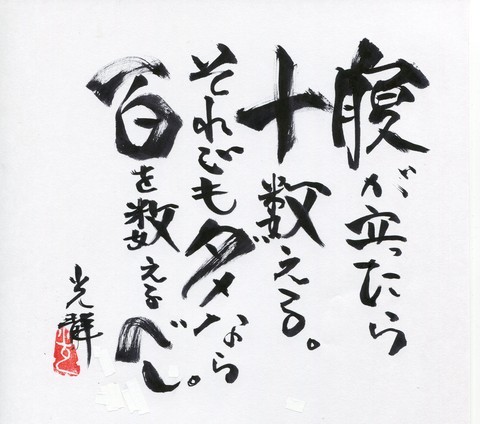 腹が立ったら
十数える。
それでもダメなら
百を数えるべし。
光祥